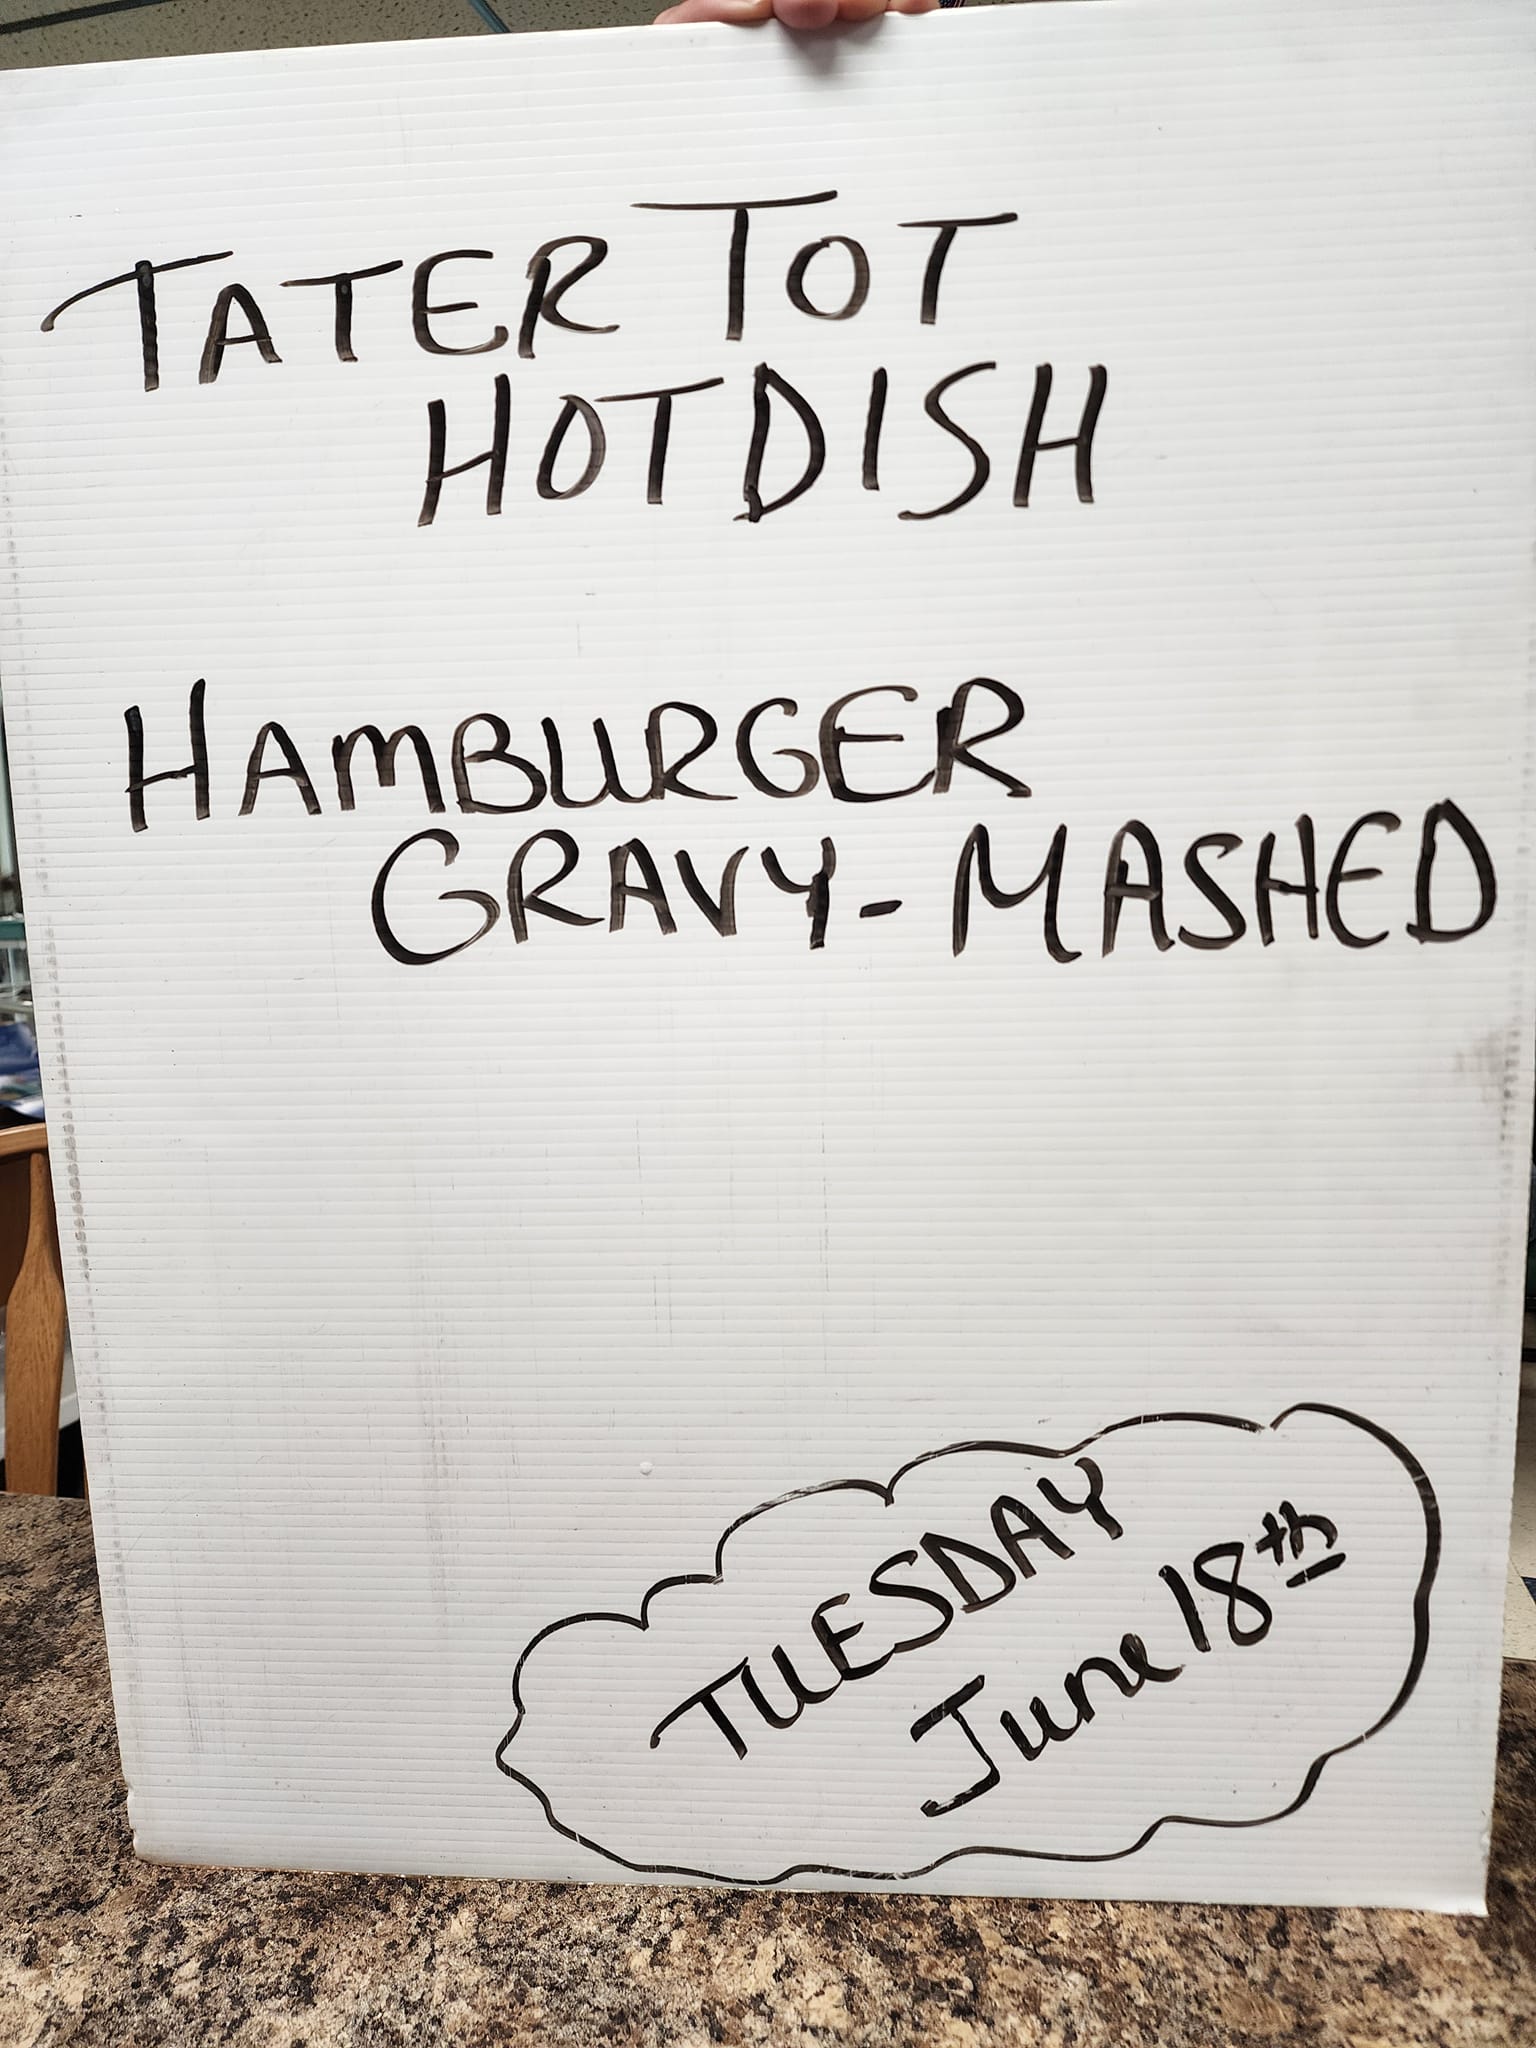 TATER TOT
HOTDISH
HAMBURGER
GRAVY-MASHED
TUESDAY
June 18th